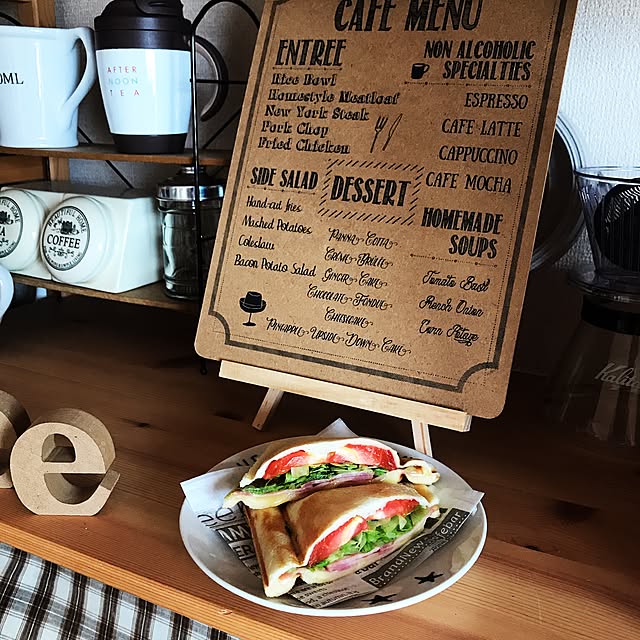 CAFE MENU
ENTREE
Rice Bowl
Homestyle Meatloaf
New York Steak
Pork Chop
Fried Chicken
NON ALCOHOLIC
SPECIALTIES
ESPRESSO
CAFE LATTE
CAPPUCCINO
CAFE MOCHA
SIDE SALAD
Hand-cut fries
Mashed Potatoes
Coleslaw
Bacon Potato Salad
DESSERT
Panna Cotta
Creme Brulee
Ginger Cake
Chocolate Fondue
Cheesecake
Pineapple Upside Down Cake
HOMEMADE
SOUPS
Tomato Basil
French Onion
Corn Potage
AFTER
NOON
TEA
BEAUTIFUL HOME
COFFEE
Kalita
e
Brand New